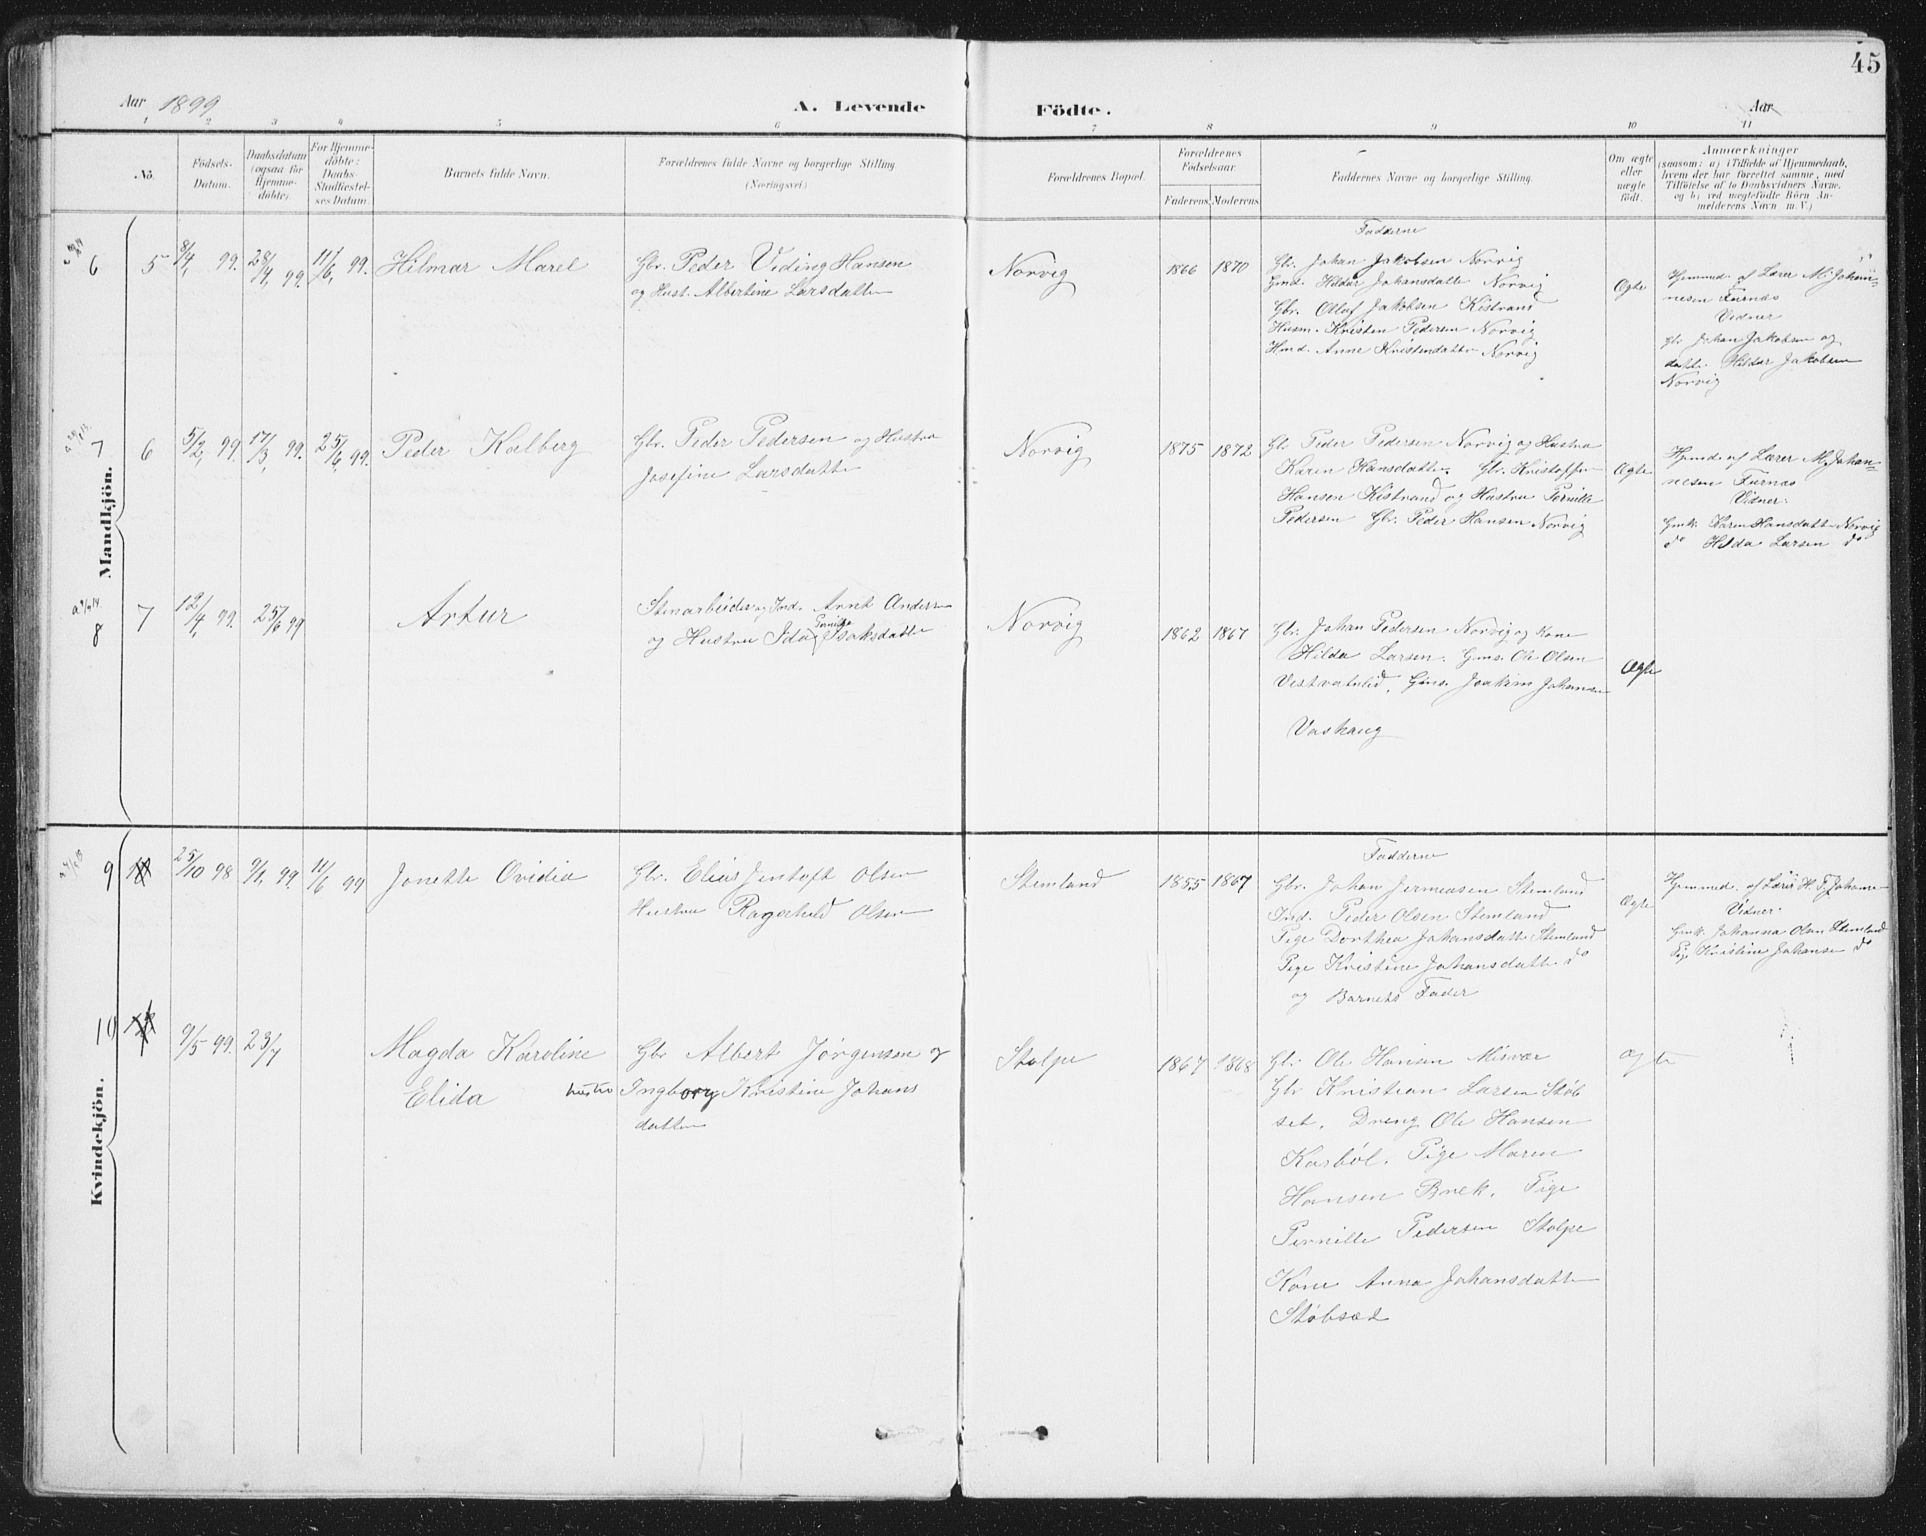 45
Aar 1899
A. Levende
Födte.
Aar
1 2 3 4 5 6 7 8 9 10 11
No.
Födsels-
Datum.
Daabsdatum
(ogsaa for
Hjemme-
döbte).
For Hjemme-
döbte:
Daabs-
Stadfæstel-
ses Datum.
Barnets fulde Navn.
Forældrenes fulde Navne og borgerlige Stilling
(Næringsvei)
Forældrenes Bopæl.
Forældrenes
Födselsaar.
Faderens. Moderens.
Faddernes Navne og borgerlige Stilling.
Om ægte
eller
uægte
født.
Anmærkninger
(saasom: a) (Tilfælde af Hjemmedaab,
hvem der har forrettet samme, med
Tilföielse af to Daabsvidners Navne,
og b) ved uægtefödte Börn An-
melderens Navn m. V.)
Mandkjön.
6 5 8/4, 99. 28/4, 99. 11/6, 99.
Hilmar Marel
Gbr. Peder Viding Hansen
og Hust. Albertine Larsdatter
Norvig
1866 1870
Fadderne
Gbr. Johan Jakobsen Norvig
Gms. Hildur Johansdatter Norvig
Gbr. Oluf Jakobsen Kistrand
Husm. Kristen Pedersen Norvig
Hmd. Anne Kristensdatter Norvig
Ægte
Hjemmed. af Lærer M. Johan-
nesen Furnæs
Vidner
Gbr Johan Jakobsen og
datter Hildur Jakobsen
Norvig
7 6 5/2, 99. 17/3, 99. 25/6 99.
Peder Kalberg
Gbr. Peder Pedersen og Hustru
Josefine Larsdatter
Norvig
1875 1872
Gbr Peder Pedersen Norvig og Hustru
Karen Hansdatter. Gbr. Kristoffer
Hansen Kistrand og Hustru Pernille
Pedersen Gbr. Peder Hansen Norvig
Ægte
Hjemde. af Lærer M. Johan-
nesen Furnæs
Vidner:
Gmk. Karen Hansdatter Norvig
do Hilda Larsen do
8 7 12/4, 99. 25/6 99
Artur
Stenarbeider og Ind. Arnt Andersen
og Hustru Ida Pernille Isaksdatter
Norvig
1862 1867
Gbr. Johan Pedersen Norvig og Kone
Hilda Larsen. Gms. Ole Olsen
Vestvatnlid, Gms. Joakim Johansen
Vashaug
Ægte
Kvindekjön.
9 25/10 98 9/1, 99. 11/6 99
Jonette Ovidia
Gbr. Elias Jentoft Olsen
Hustru Ragnhild Olsen
Stemland
1855 1867
Fadderne
Gbr. Johan Jermensen Stemland
Ind. Peder Olsen Stemland
Pige Dorthea Johansdatter Stemland
Pige Kristine Johansdatter do
og Barnets Fader
Ægte
Hjemmed. af Lærer H. F. Johanne-
Vidner.
Gmk. Johanna Olsen Stemland
Pige Kristine Johansen do
10 9/5 99. 23/7
Magda Karoline
Elida
Gbr Albert Jörgensen og
hustru Ingborg Kristine Johans
datter
Stolpe
1867 1868
Gbr. Ole Hansen Misvær
Gbr Kristian Larsen Stöb
set. Dreng Ole Hansen
Karbøl. Pige Maren
Hansen Bræk. Pige
Pernille Pedersen Stolpe
Kone Anna Johansdatter
Stöbsæt
ægte